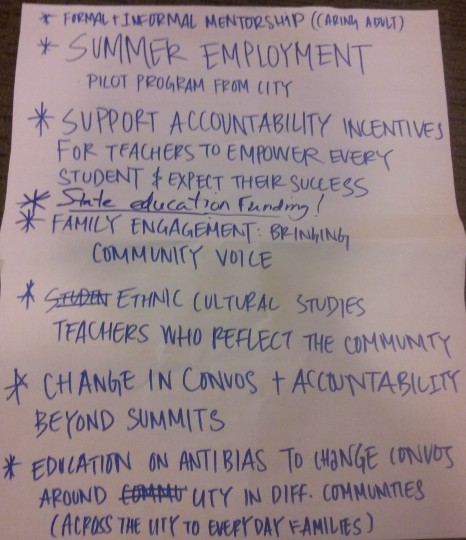 * FORMAL + INFORMAL MENTORSHIP (CARING ADULT)
* SUMMER EMPLOYMENT
PILOT PROGRAM FROM CITY
* SUPPORT ACCOUNTABILITY INCENTIVES
FOR TEACHERS TO EMPOWER EVERY
STUDENT & EXPECT THEIR SUCCESS
* State education Funding!
* FAMILY ENGAGEMENT: BRINGING
COMMUNITY VOICE
* STUDEN ETHNIC CULTURAL STUDIES
TEACHERS WHO REFLECT THE COMMUNITY
* CHANGE IN CONVOS + ACCOUNTABILITY
BEYOND SUMMITS
* EDUCATION ON ANTIBIAS TO CHANGE CONVOS
AROUND COMMU CITY IN DIFF. COMMUNITIES
(ACROSS THE CITY TO EVERYDAY FAMILIES)